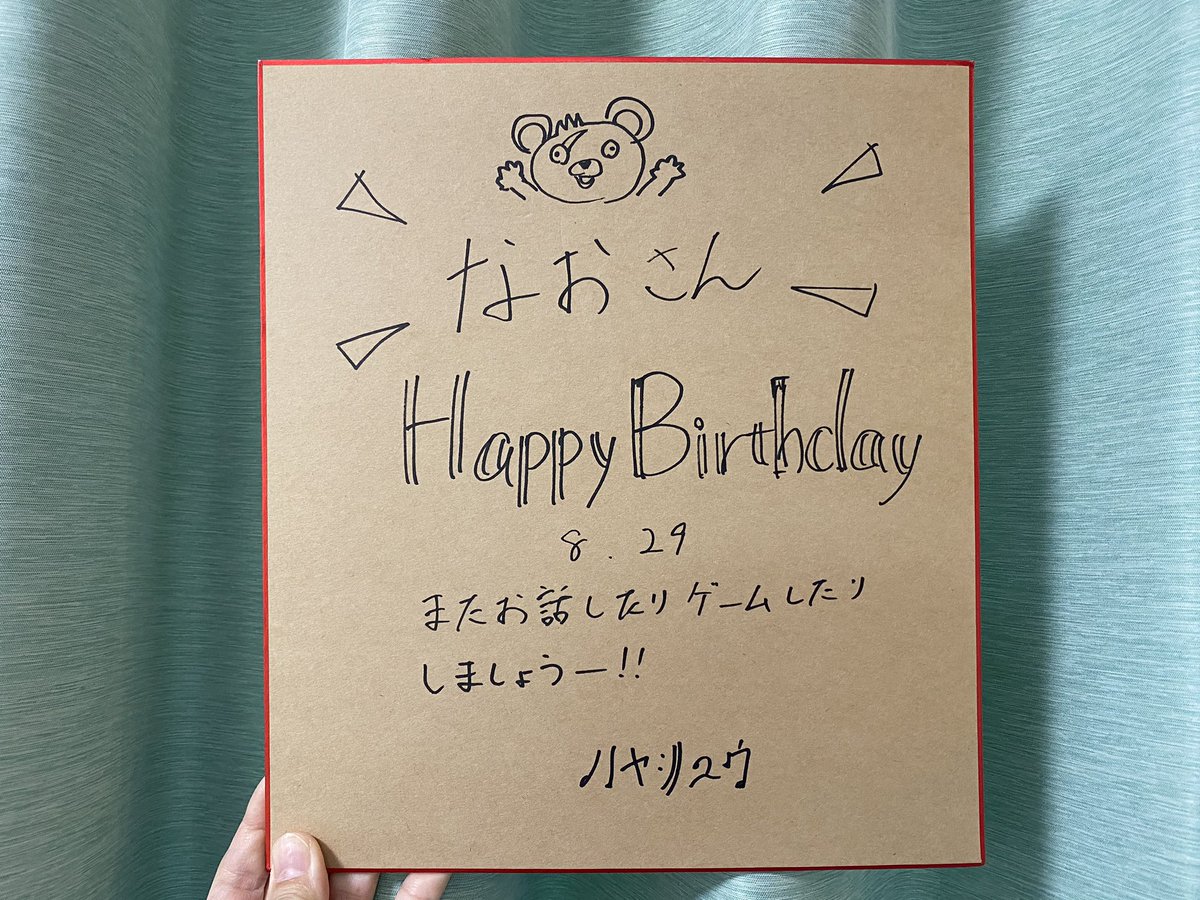 なおさん
Happy Birthday
8.29
またお話したりゲームしたり
しましょうー!!
ハヤシユウ